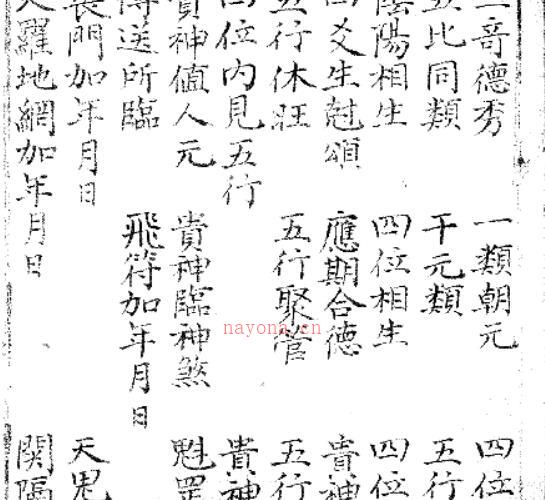 奇德秀 一類朝元 四位
五比同類 干元類 五行
陰陽相生 四位相生 四位
四爻生尅頌 應期合德 貴神
五行休旺 五行聚管 五行
四位內見五行 貴神
貴神值人元 貴神臨神煞 魁罡
傳送所臨 飛符加年月日
喪門加年月日 天鬼
天羅地網加年月日 關隔
nayona.cn